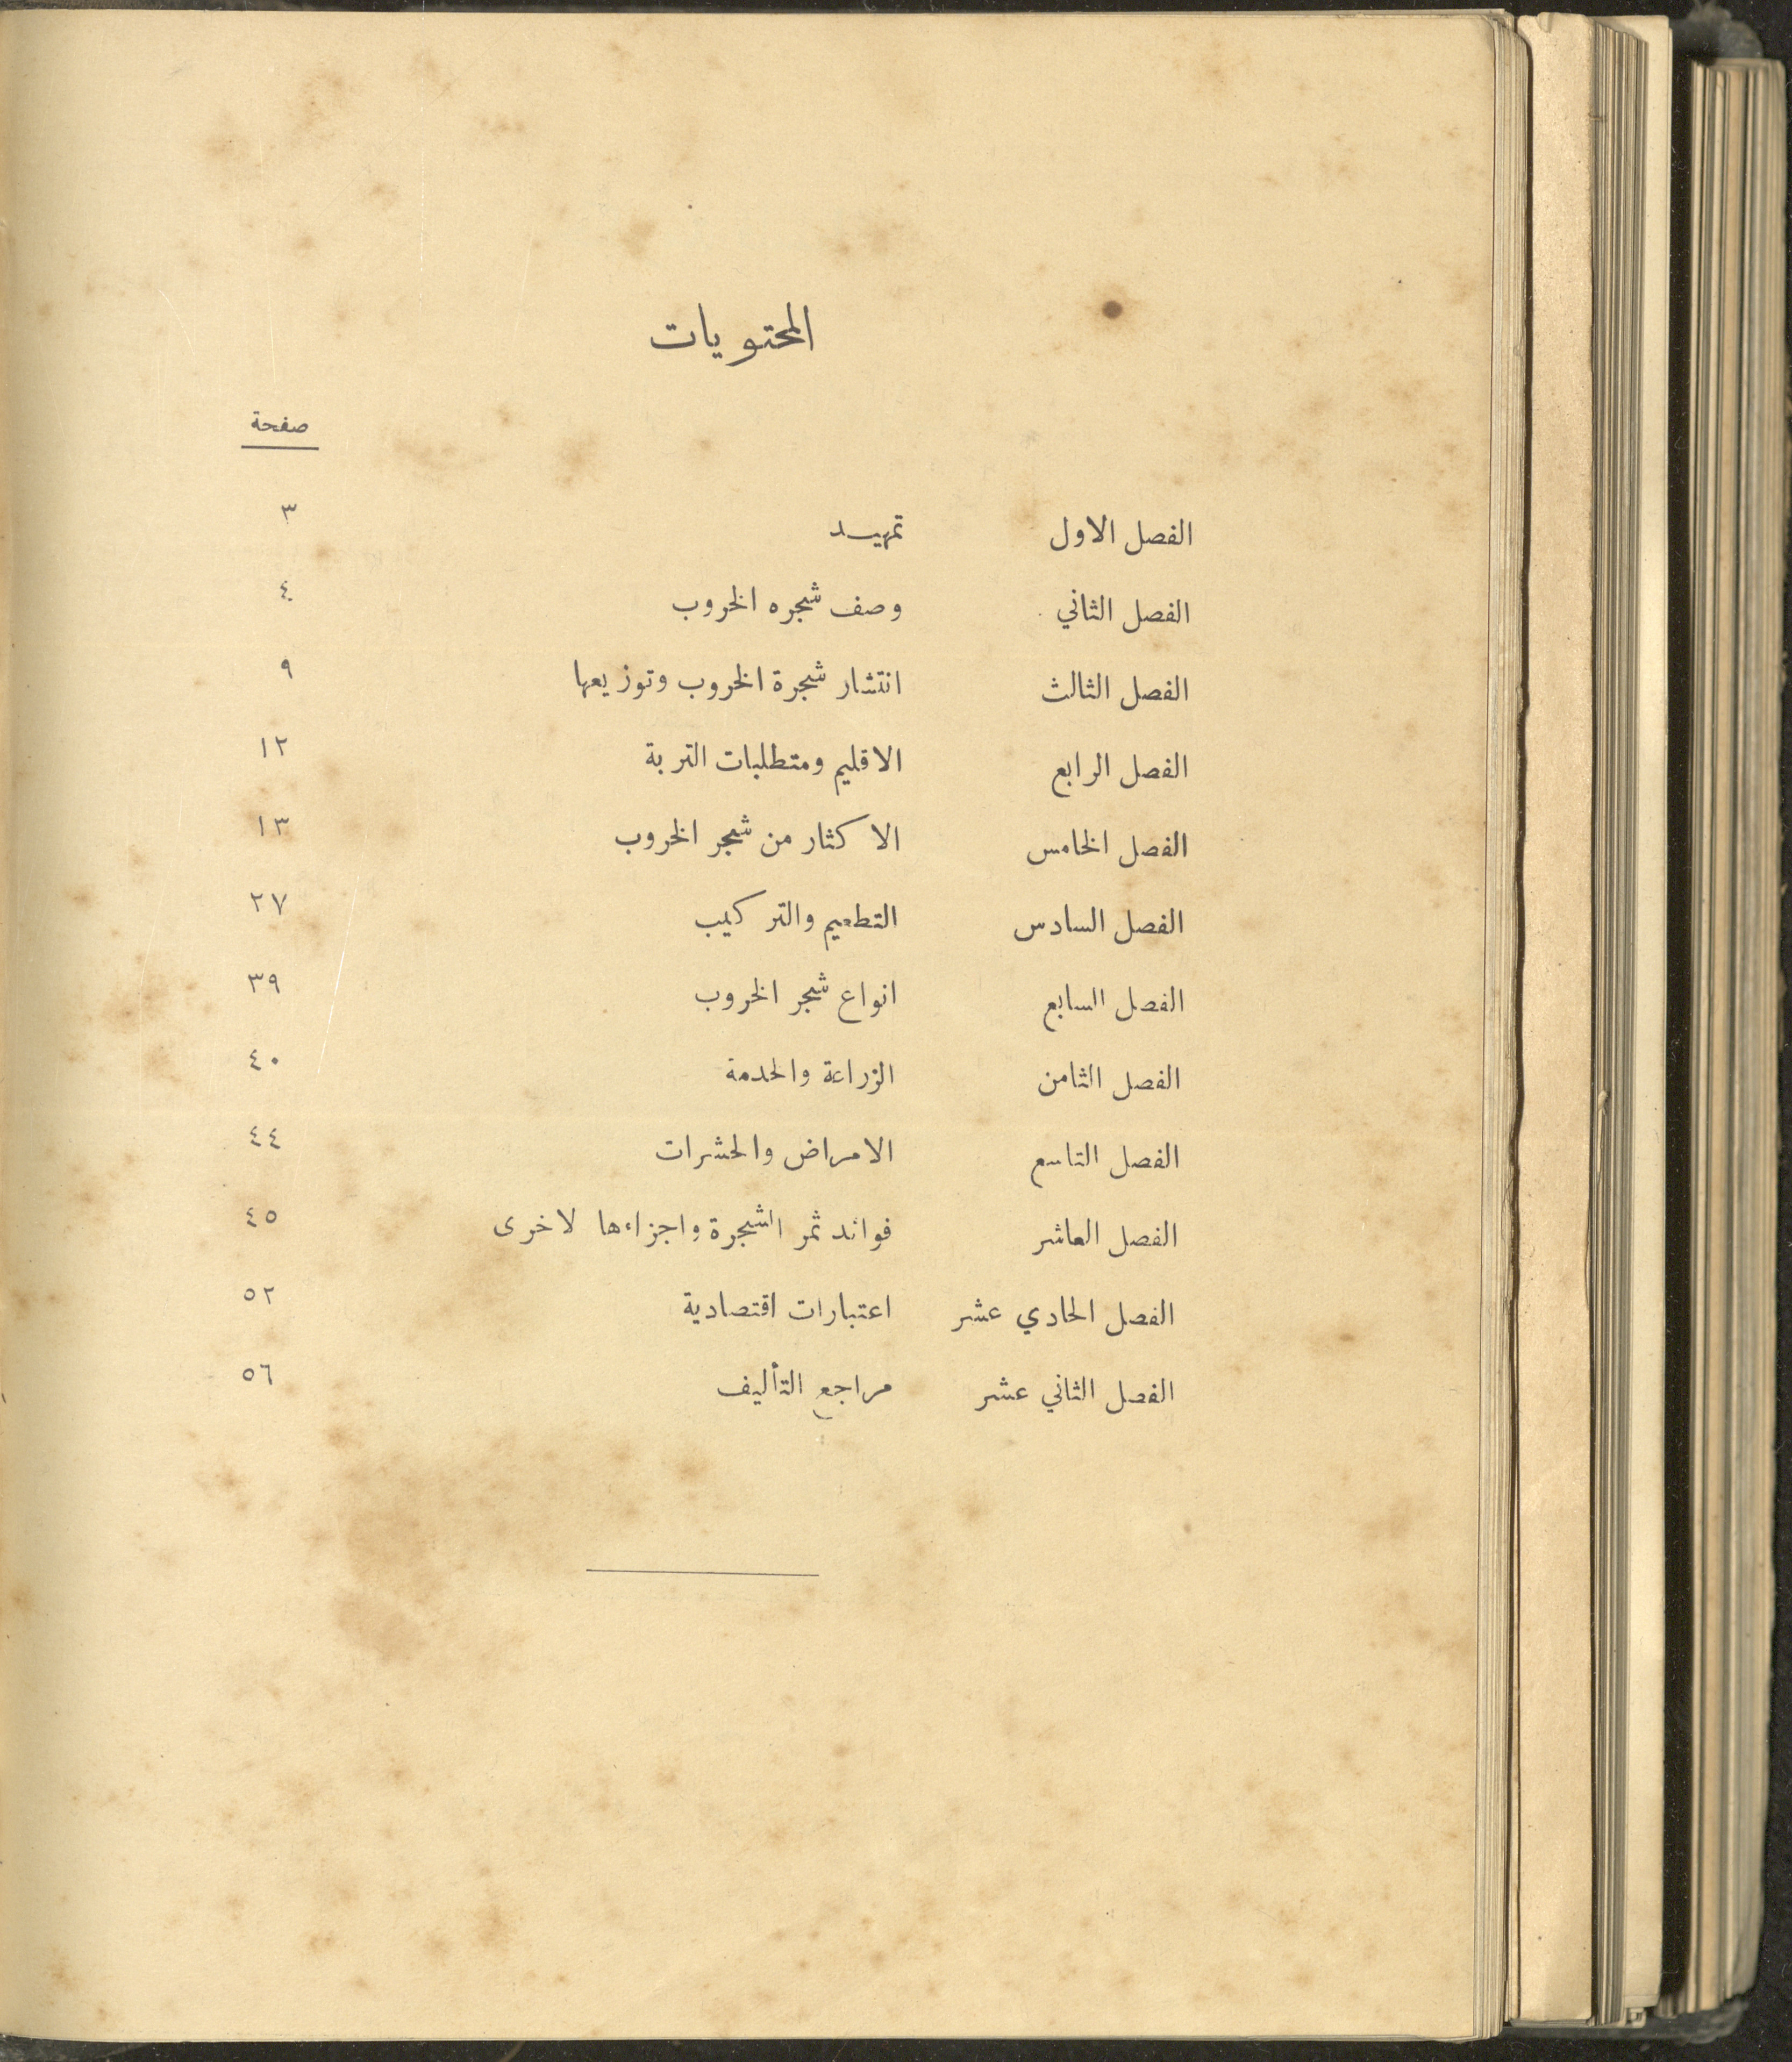 المحتويات
صفحة
الفصل الاول تمهيد ٣
الفصل الثاني وصف شجره الخروب ٤
الفصل الثالث انتشار شجرة الخروب وتوزيعها ٩
الفصل الرابع الاقليم ومتطلبات التربة ١٢
الفصل الخامس الاكثار من شجر الخروب ١٣
الفصل السادس التطعيم والتركيب ٢٧
الفصل السابع انواع شجر الخروب ٣٩
الفصل الثامن الزراعة والخدمة ٤٠
الفصل التاسع الامراض والحشرات ٤٤
الفصل العاشر فوائد ثمر الشجرة واجزاءها لاخرى ٤٥
الفصل الحادي عشر اعتبارات اقتصادية ٥٢
الفصل الثاني عشر مراجع التأليف ٥٦